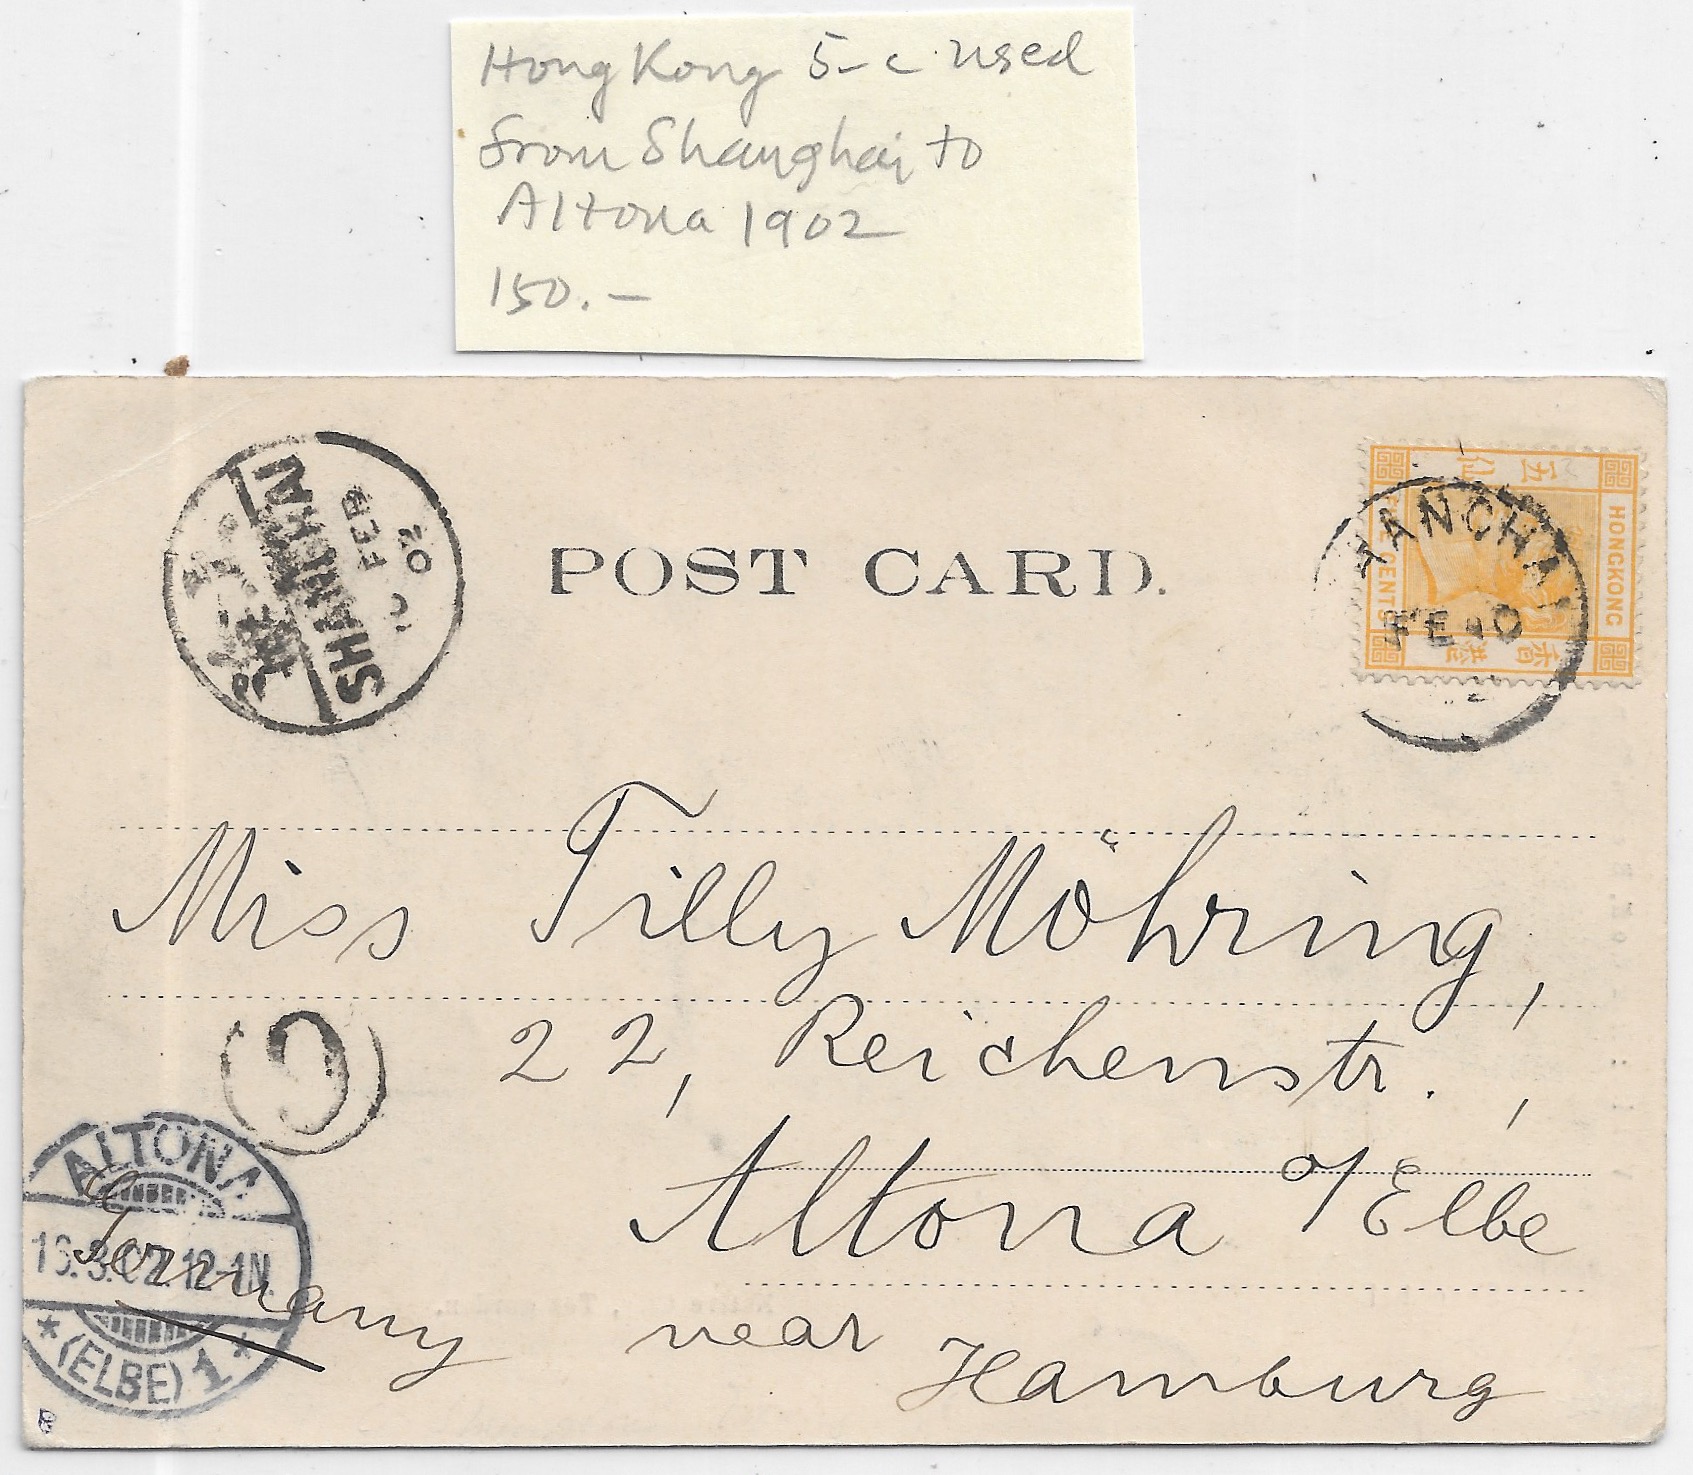 Hong Kong 5-c used
from Shanghai to
Altona 1902
150.-
POST CARD.
SHANGHAI
10 FEB 02
HONGKONG
FIVE CENTS
Miss Tilly Möhring,
22, Reichenstr.,
Altona a/Elbe
near
Hamburg
Germany
ALTONA
(ELBE) 1